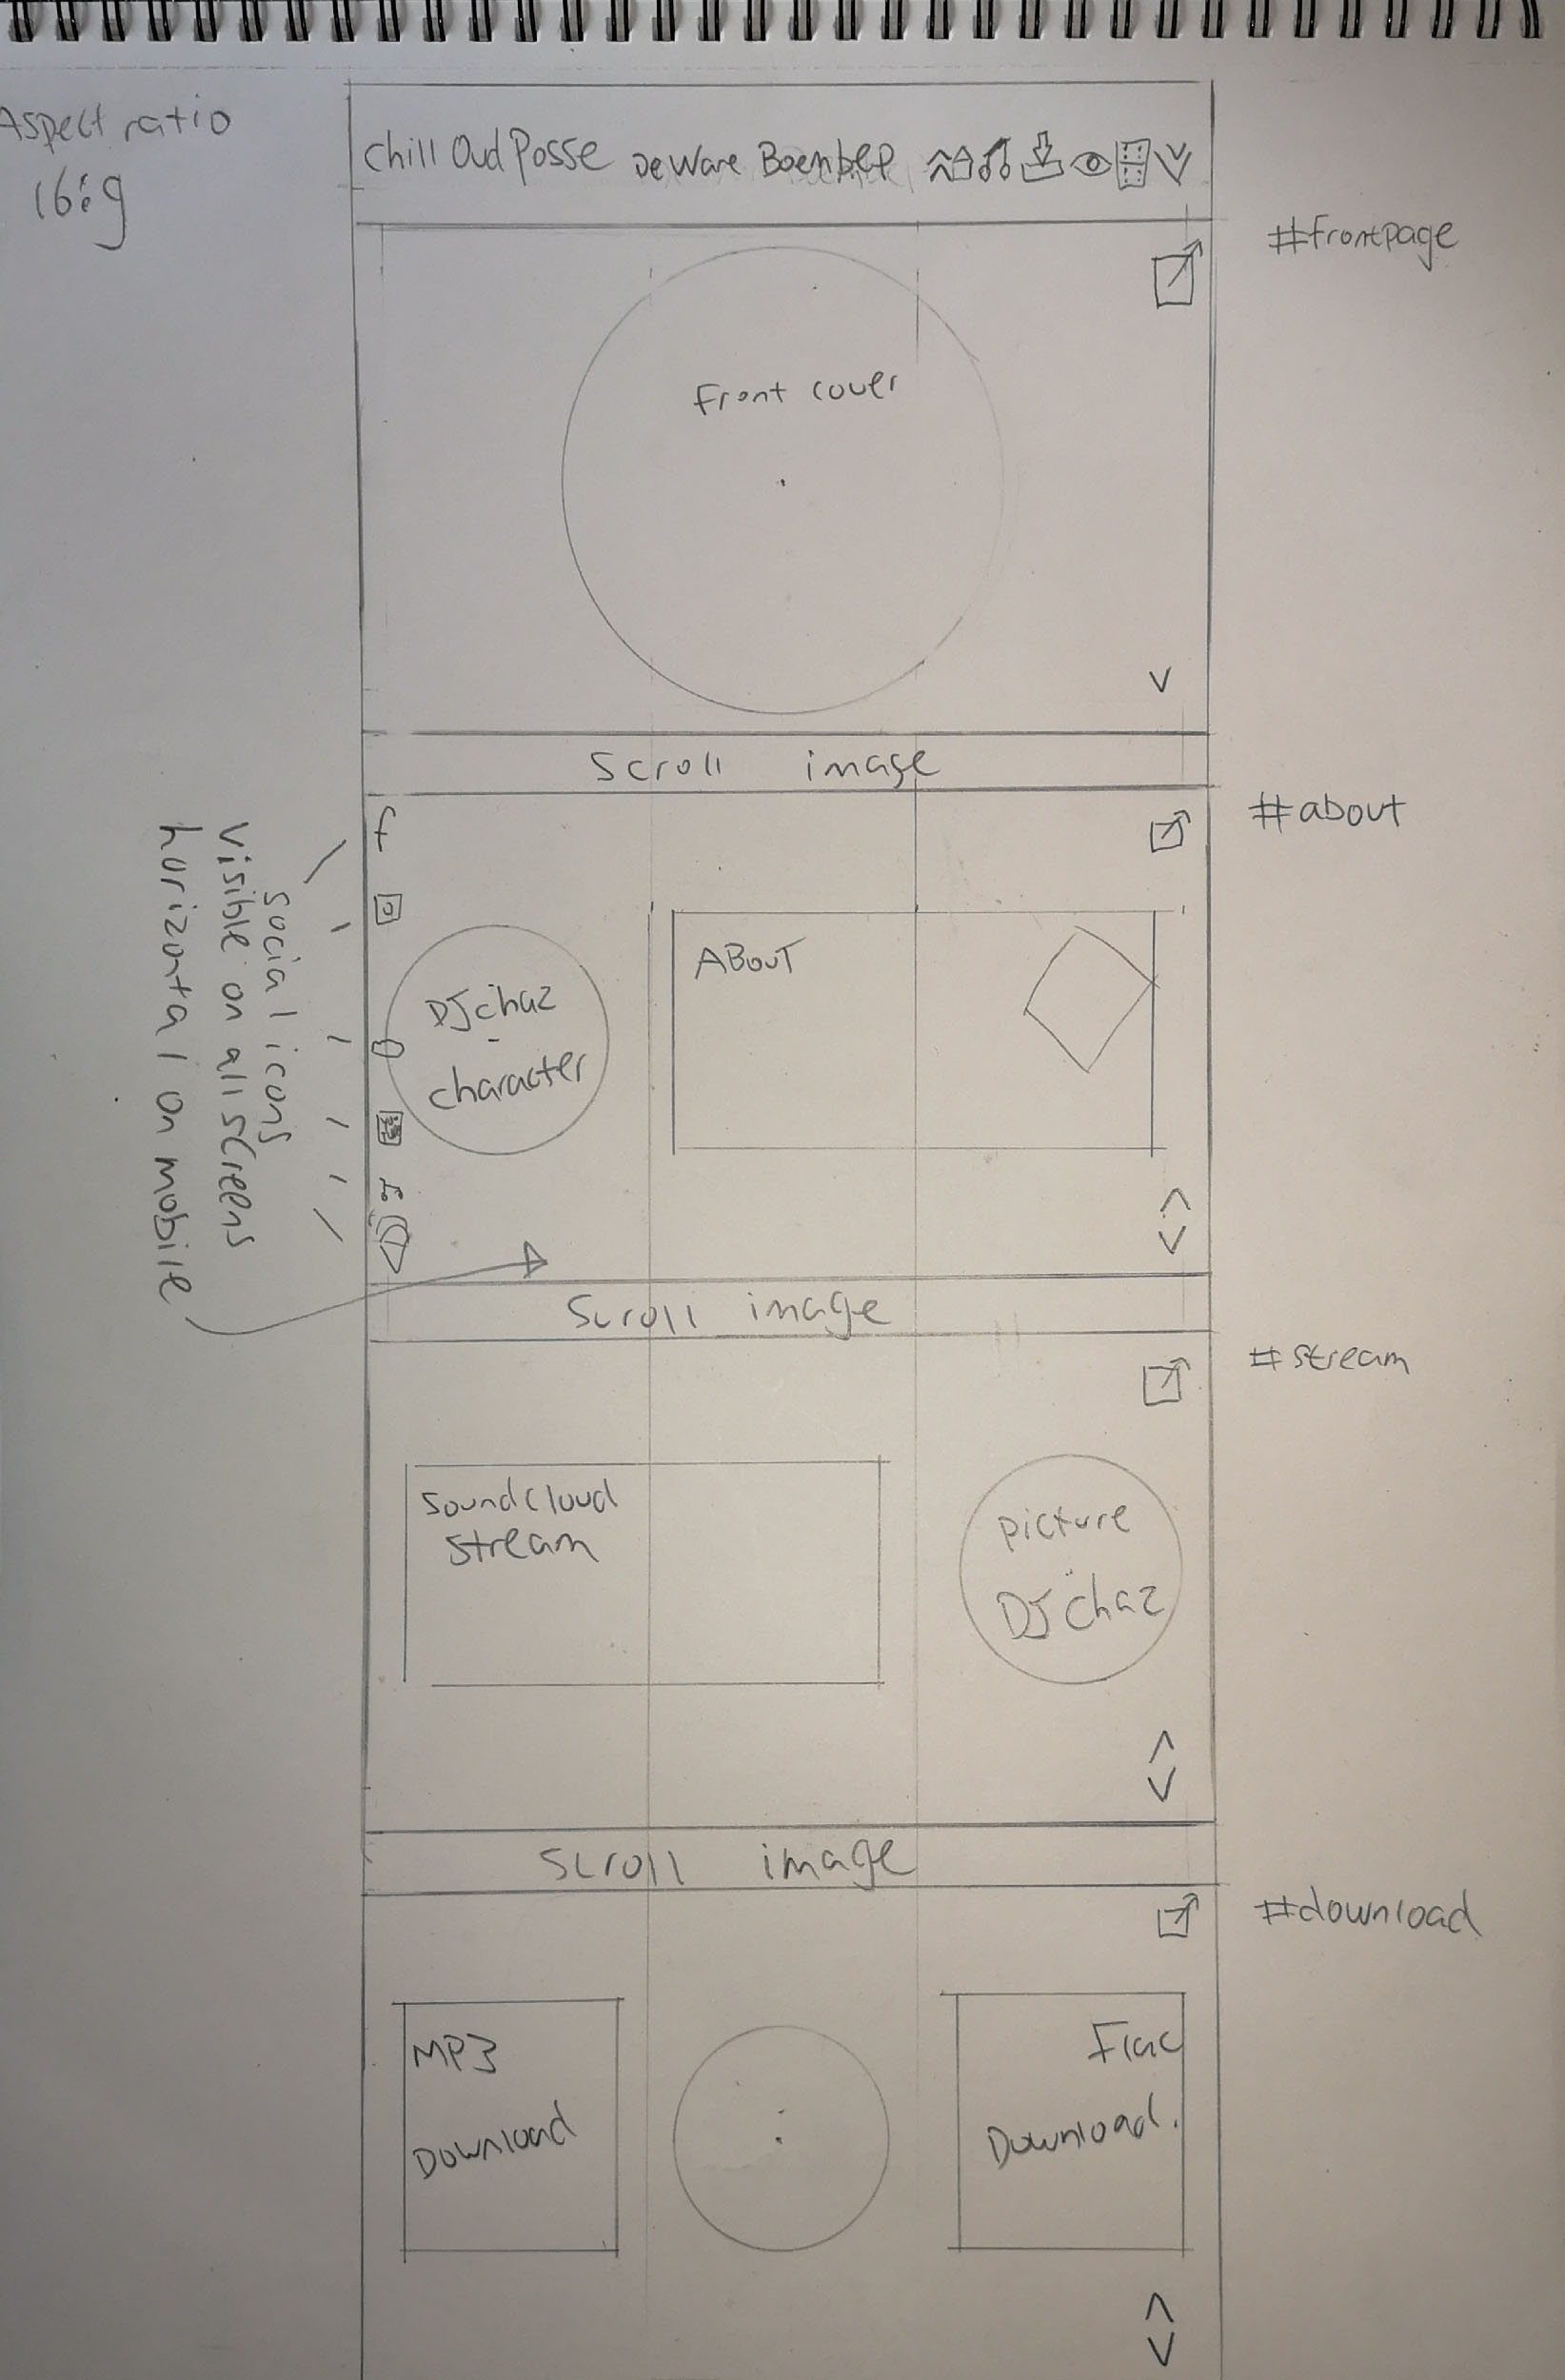 Aspect ratio
16:9
Chill Oud Posse De Ware Boenbep
#frontpage
Front cover
V
Scroll image
#about
f
social icons
visible on all screens
horizontal on mobile
DJ chaz
-
character
ABOUT
Scroll image
#stream
Soundcloud
stream
picture
DJ chaz
Scroll image
#download
MP3
Download
Flac
Download.